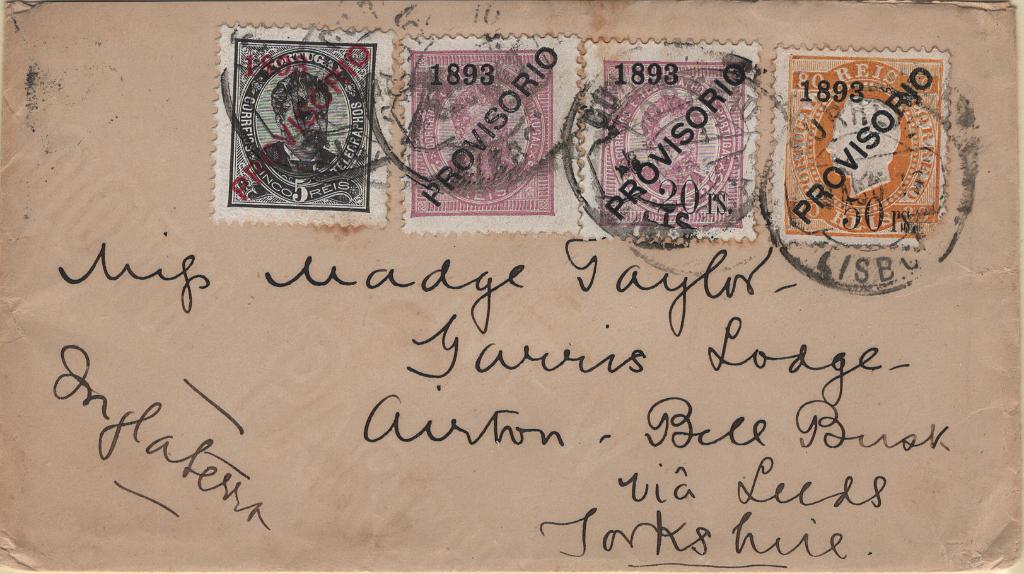 PORTUGAL
CORREIOS
TELEGRAPHOS
PROVISORIO
CINCO REIS
5
1893
PROVISORIO
1893
PROVISORIO
20 rs.
80 REIS
1893
PROVISORIO
50 rs.
LISBO
Miss Madge Taylor-
Garris Lodge-
Airton - Bell Busk
viâ Leeds
Yorkshire.
Inglaterra